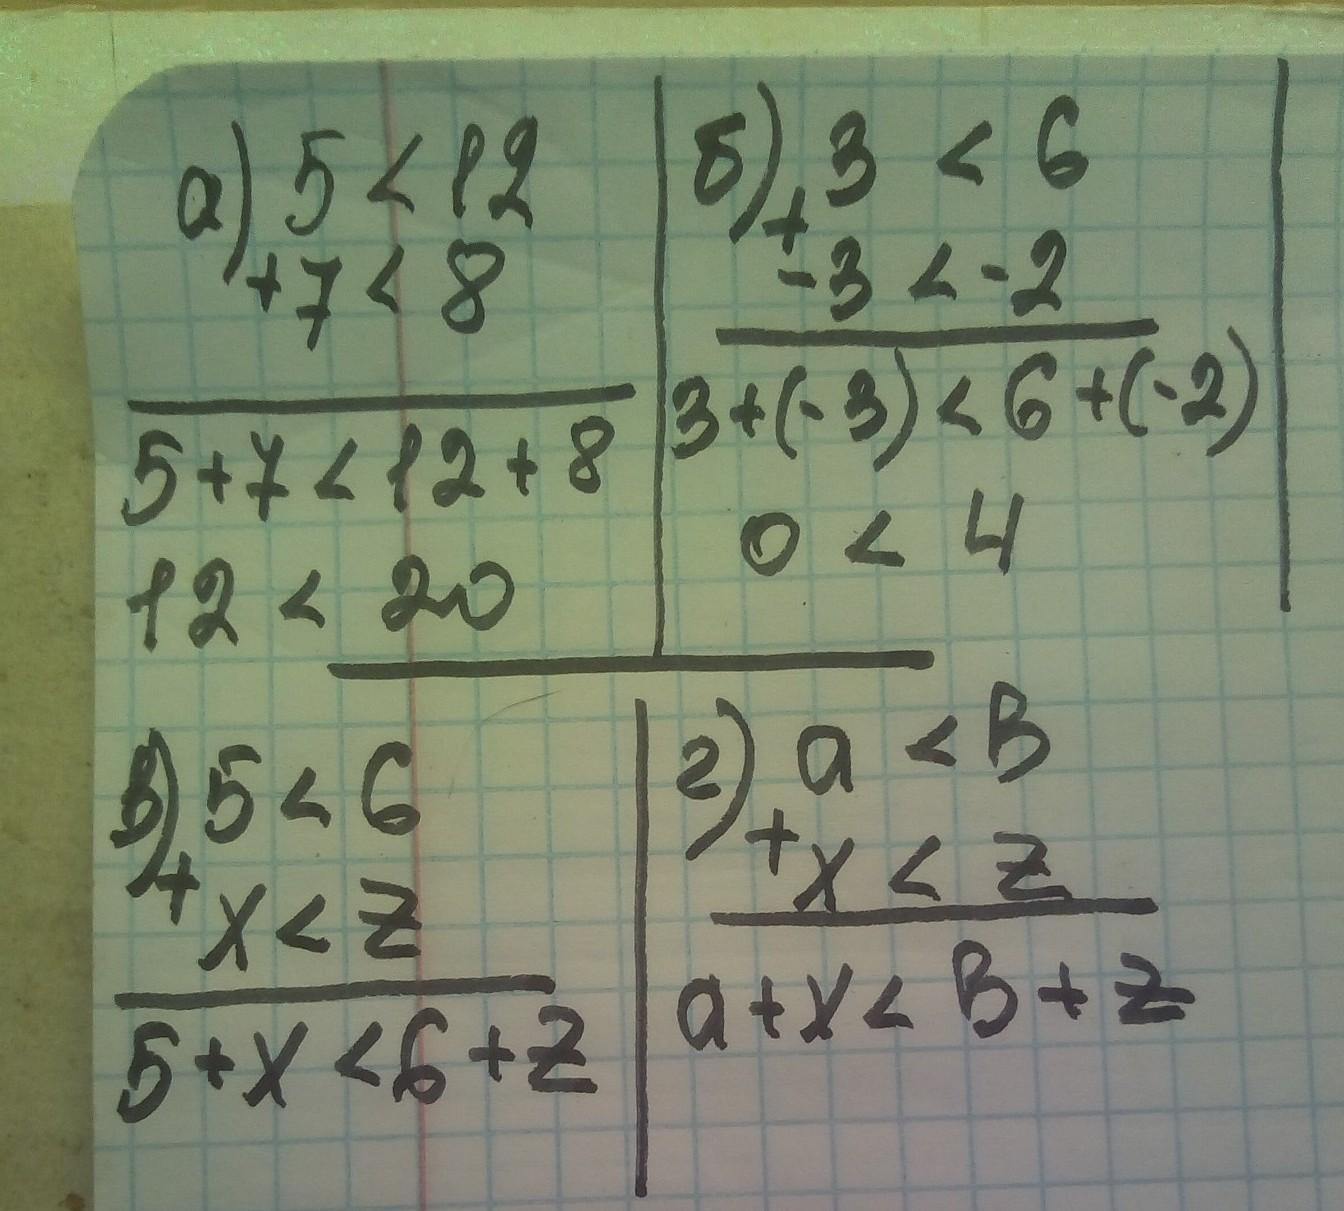 а) 5 < 12
+ 7 < 8
5 + 7 < 12 + 8
12 < 20
б) + 3 < 6
-3 < -2
3 + (-3) < 6 + (-2)
0 < 4
в) + 5 < 6
x < z
5 + x < 6 + z
г) + a < B
x < z
a + x < B + z